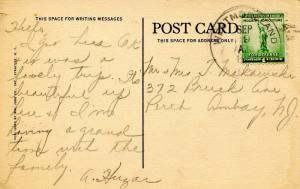 THIS SPACE FOR WRITING MESSAGES
POST CARD
THIS SPACE FOR ADDRESS ONLY
SEP
Hello,
I got here OK
it was a
lovely trip. It's
beautiful up
here & I'm
having a grand
time with the
family.
A. Huzar
Mr & Mrs J. Makowski
372 Brook Ave
Perth Amboy, N.J.